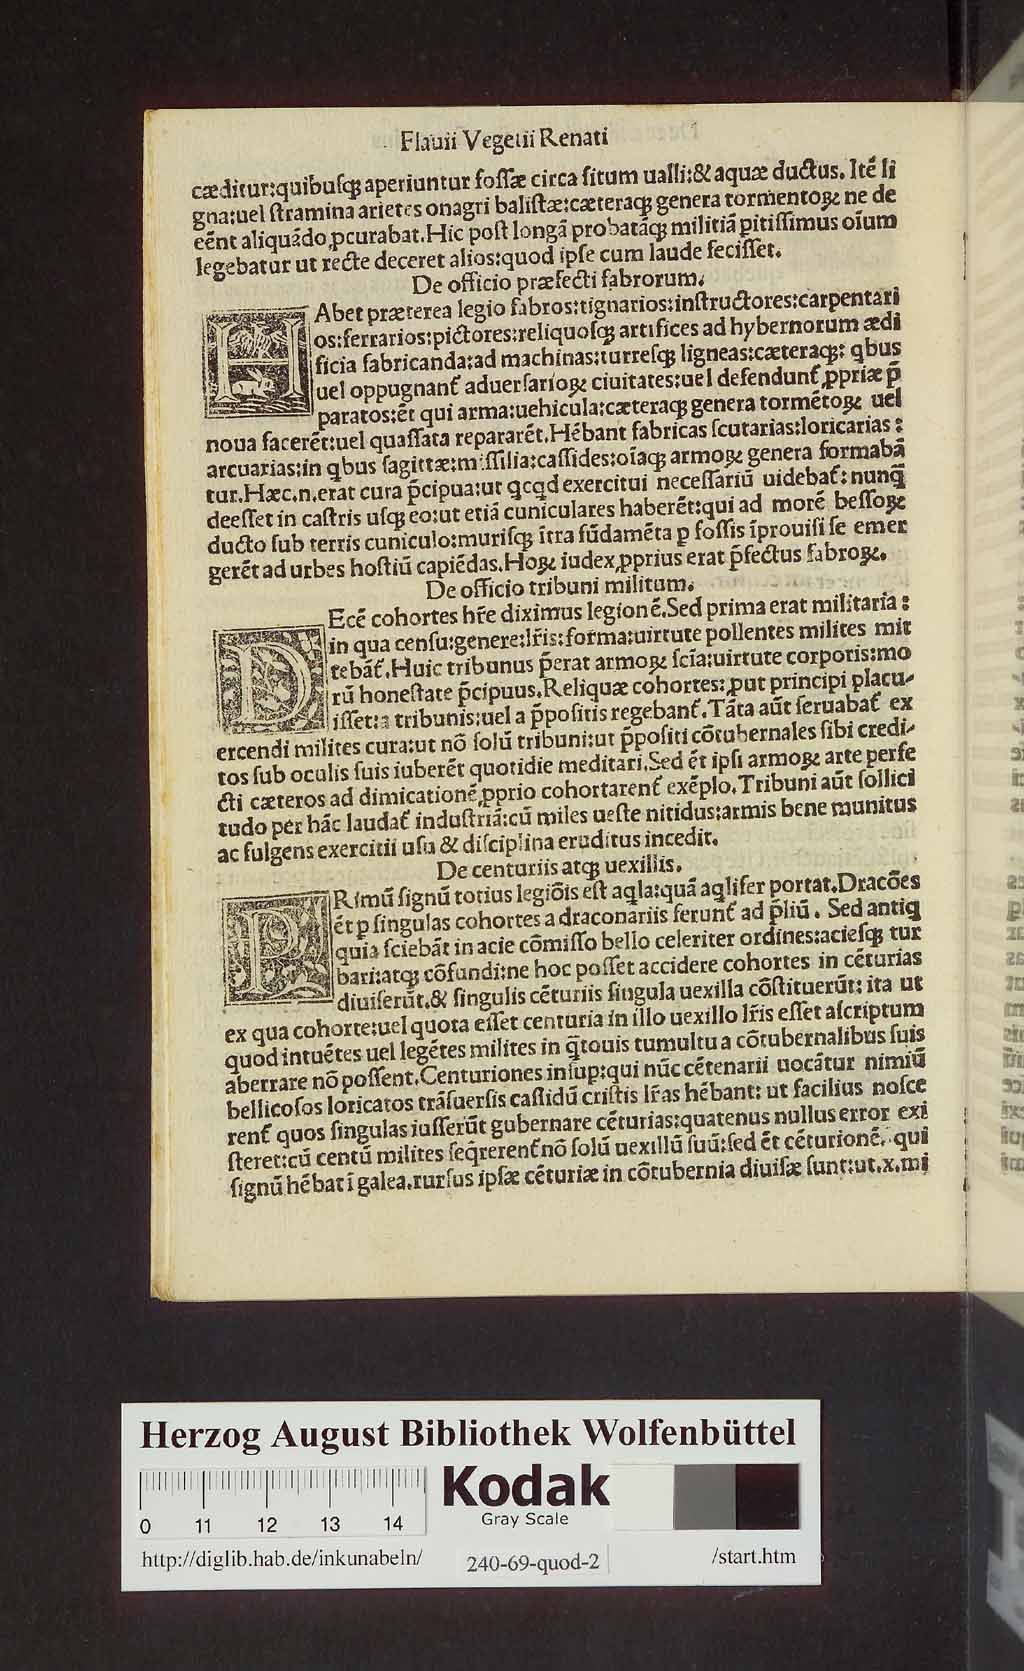 Flauii Vegetii Renati
cæditur:quibuſqꝫ aperiuntur foſſæ circa ſitum ualli:& aquæ ductus. Itē li
gna:uel ſtramina arietes onagri baliſtæ:cæteraqꝫ genera tormentoꝝ ne de
eēnt aliquādo ꝓcurabat.Hic poſt longā probatāqꝫ militiā ꝑitiſſimus oīum
legebatur ut recte deceret alios:quod ipſe cum laude feciſſet.
De officio præfecti fabrorum.
HAbet præterea legio fabros:tignarios:inſtructores:carpentari
os:ferrarios:pictores:reliquoſqꝫ artifices ad hybernorum ædi
ficia fabricanda:ad machinas:turreſqꝫ ligneas:cæteraqꝫ: qbus
uel oppugnant̃ aduerſarioꝝ ciuitates:uel defendunt̃ ꝓpriæ p̄
paratos:ēt qui arma:uehicula:cæteraqꝫ genera tormētoꝝ uel
noua facerēt:uel quaſſata repararēt.Hēbant fabricas ſcutarias:loricarias:
arcuarias:in qbus ſagittæ:miſſilia:caſſides:oīaqꝫ armoꝝ genera formabā
tur.Hæc.n.erat cura p̄cipua:ut qcqd exercitui neceſſariū uidebat̃: nunq̄
deeſſet in caſtris uſqꝫ eo:ut etiā cuniculares haberēt:qui ad morē beſſoꝝ
ducto ſub terris cuniculo:muriſqꝫ ītra fūdamēta ꝑ foſſis īprouiſi ſe emer
gerēt ad urbes hoſtiū capiēdas.Hoꝝ iudex ꝓprius erat p̄fectus fabroꝝ.
De officio tribuni militum.
DEcē cohortes hr̄e diximus legionē.Sed prima erat militaria:
in qua cenſu:genere:lr̄is:forma:uirtute pollentes milites mit
tebāt̃.Huic tribunus p̄erat armoꝝ ſcīa:uirtute corporis:mo
rū honeſtate p̄cipuus.Reliquæ cohortes:ꝓut principi placu-
iſſet:a tribunis:uel a p̄poſitis regebant̃.Tāta aūt ſeruabat̃ ex
ercendi milites cura:ut nō ſolū tribuni:ut p̄poſiti cōtubernales ſibi credi-
tos ſub oculis ſuis iuberēt quotidie meditari.Sed ēt ipſi armoꝝ arte perfe
cti cæteros ad dimicationē ꝓprio cohortarent̃ exēplo.Tribuni aūt ſollici
tudo per hāc laudat̃ induſtriā:cū miles ueſte nitidus:armis bene munitus
ac fulgens exercitii uſu & diſciplina eruditus incedit.
De centuriis atqꝫ uexillis.
PRimū ſignū totius legiōis eſt aqla:quā aqlifer portat.Dracōes
ēt ꝑ ſingulas cohortes a draconariis ferunt̃ ad p̄liū. Sed antiq
quia ſciebāt in acie cōmiſſo bello celeriter ordines:acieſqꝫ tur
bari:atqꝫ cōfundi:ne hoc poſſet accidere cohortes in cēturias
diuiſerūt.& ſingulis cēturiis ſingula uexilla cōſtituerūt: ita ut
ex qua cohorte:uel quota eſſet centuria in illo uexillo lr̄is eſſet aſcriptum
quod intuētes uel legētes milites in q̄touis tumultu a cōtubernalibus ſuis
aberrare nō poſſent.Centuriones inſup:qui nūc cētenarii uocātur nimiū
bellicoſos loricatos trāſuerſis caſſidū criſtis lr̄as hēbant: ut facilius noſce
rent̃ quos ſingulas iuſſerūt gubernare cēturias:quatenus nullus error exi
ſteret:cū centū milites ſeq̄rerent̃ nō ſolū uexillū ſuū:ſed ēt cēturionē. qui
ſignū hēbat ī galea.rurſus ipſæ cēturiæ in cōtubernia diuiſæ ſunt:ut.x.mi
Herzog August Bibliothek Wolfenbüttel
Kodak
Gray Scale
0 11 12 13 14
http://diglib.hab.de/inkunabeln/ 240-69-quod-2 /start.htm